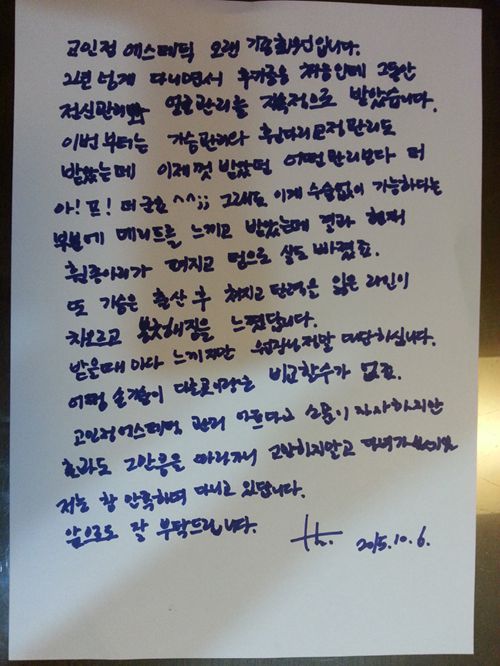 고인정 에스테틱 오랜 기존회원입니다.
그년 넘게 다니면서 후기글은 처음인데 그동안
전신관리와 얼굴관리를 지속적으로 받았습니다.
이번 부터는 가슴관리와 휜다리교정관리도
받았는데 이제껏 받았던 어떤관리보다 더
아! 프! 더군요 ^^;; 그래도 이게 수술없이 가능하다는
부분에 메리트를 느끼고 받았는데 결과 현재
휜종아리가 펴지고 덤으로 살도 빠졌죠.
또 가슴은 출산 후 쳐지고 탄력을 잃은 라인이
차오르고 봉긋해짐을 느꼈답니다.
받을때 마다 느끼지만 원장님 정말 대단하십니다.
어떤 손길이 다른곳과는 비교할수가 없죠.
고인정에스테틱 관리 아프다고 소문이 자자하지만
효과도 그만큼은 따라져니 고민하지말고 다녀가
저는 참 만족하며 다니고 있답니다.
앞으로도 잘 부탁드립니다.
2015.10.6.